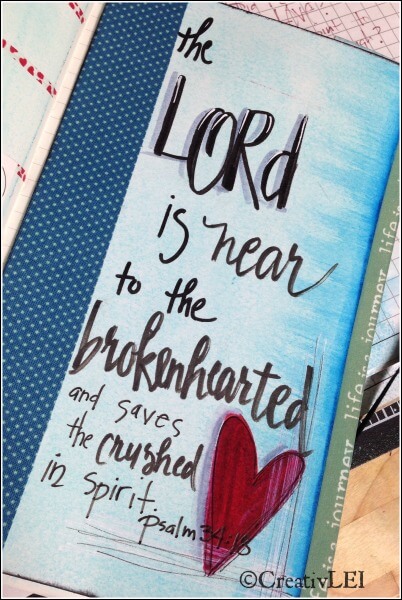 the
LORd
is near
to the
brokenhearted
and saves
the crushed
in spirit.
psalm 34:18
life is a journey.
©CreativLEI